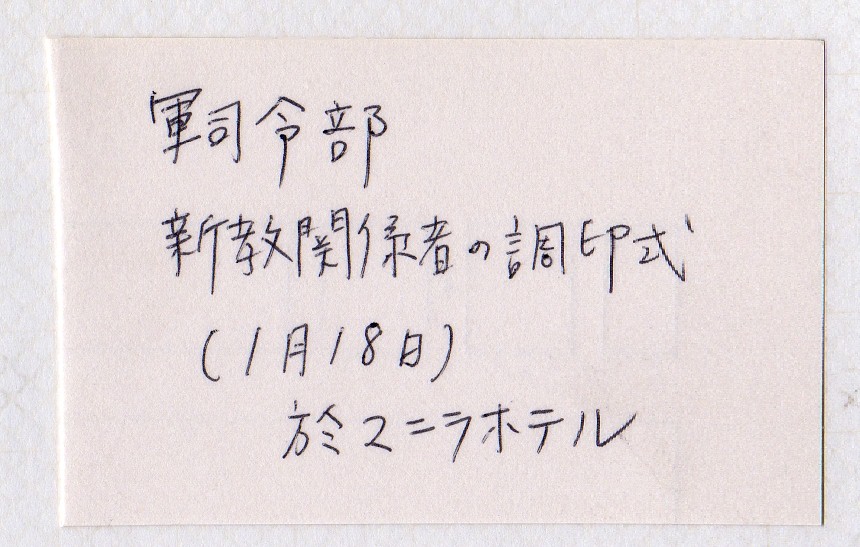 軍司令部
新教関係者の調印式
(1月18日)
於マニラホテル